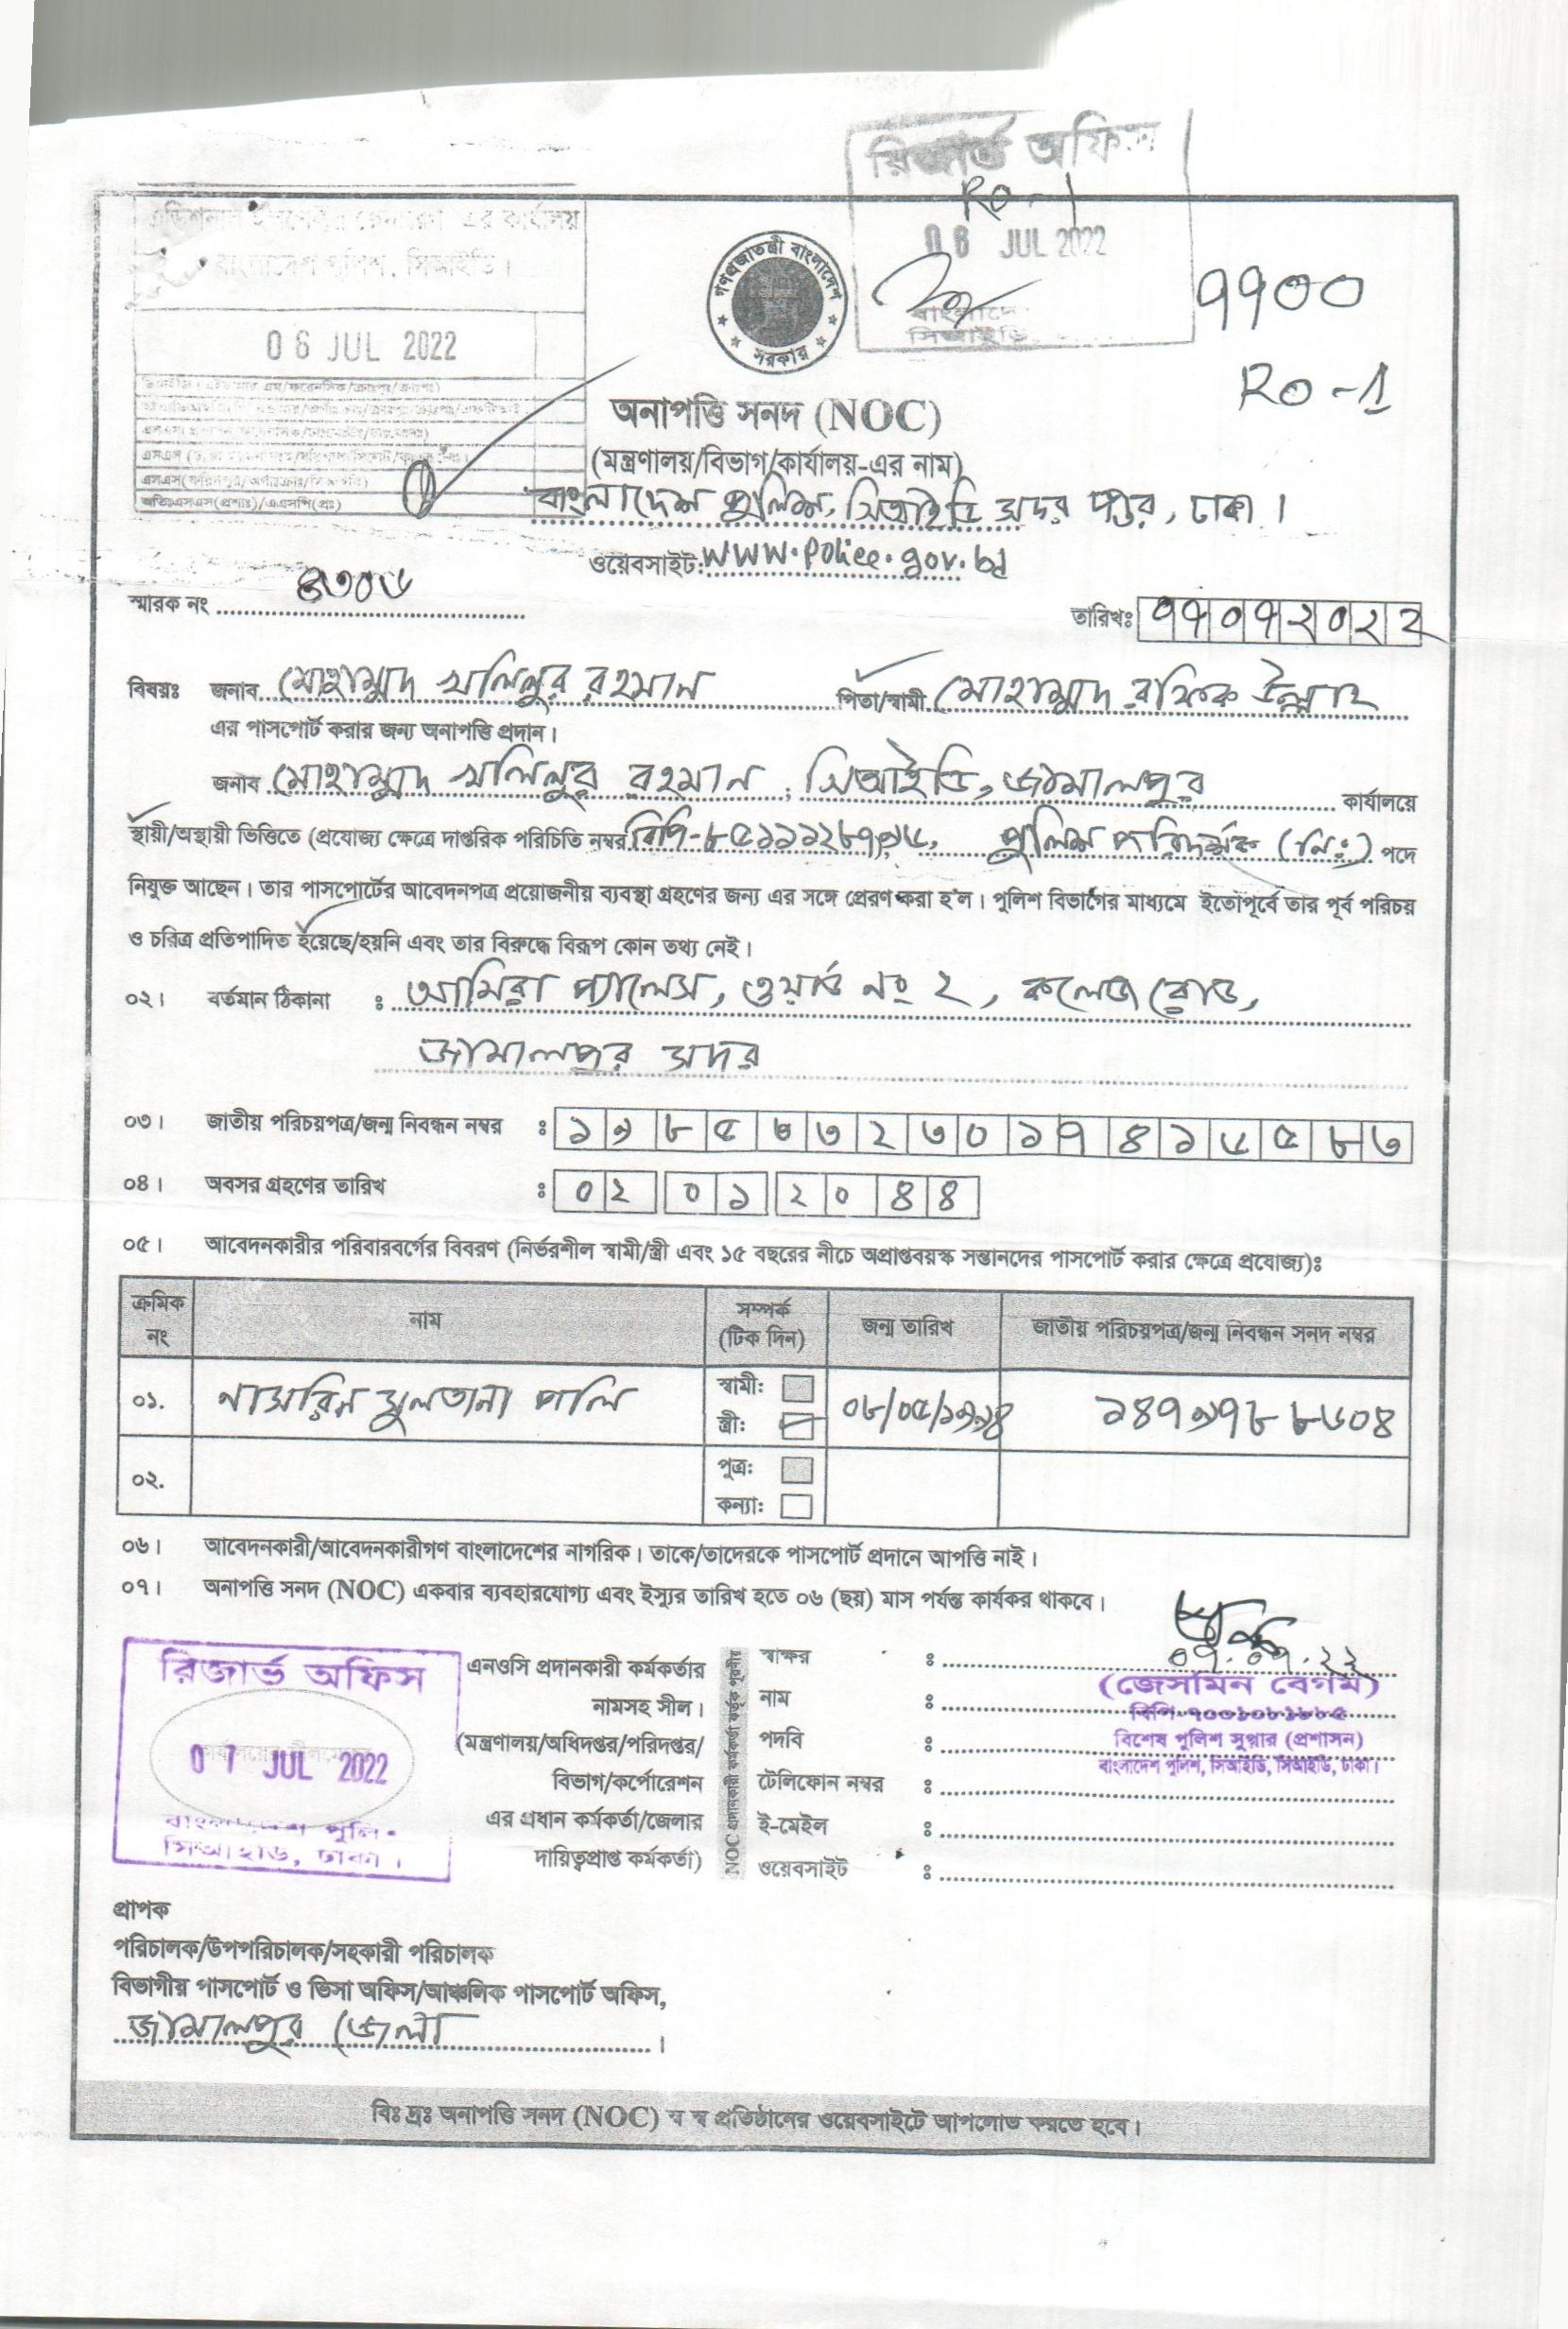 রিজার্ভ অফিস
RO-1
06 JUL 2022
সিআইডি
৭৭০০
RO-1
এর কার্যালয়
বাংলাদেশ পুলিশ, সিআইডি।
06 JUL 2022
অতিঃএসএস(প্রশাঃ)/এএসপি(প্রঃ)
গণপ্রজাতন্ত্রী বাংলাদেশ
সরকার
অনাপত্তি সনদ (NOC)
(মন্ত্রণালয়/বিভাগ/কার্যালয়-এর নাম)
বাংলাদেশ পুলিশ, সিআইডি সদর দপ্তর, ঢাকা।
ওয়েবসাইট: www.police.gov.bd
স্মারক নং ৪৩০৬
তারিখঃ ০৭০৭২০২২
বিষয়ঃ জনাব মোহাম্মদ খলিলুর রহমান পিতা/স্বামী মোহাম্মদ রফিক উল্লাহ
এর পাসপোর্ট করার জন্য অনাপত্তি প্রদান।
জনাব মোহাম্মদ খলিলুর রহমান, সিআইডি, জামালপুর কার্যালয়ে
স্থায়ী/অস্থায়ী ভিত্তিতে (প্রযোজ্য ক্ষেত্রে দাপ্তরিক পরিচিতি নম্বর বিপি-৮৫১১১২৪৭৯৬, পুলিশ পরিদর্শক (নিঃ) পদে
নিযুক্ত আছেন। তার পাসপোর্টের আবেদনপত্র প্রয়োজনীয় ব্যবস্থা গ্রহণের জন্য এর সঙ্গে প্রেরণ করা হ'ল। পুলিশ বিভাগের মাধ্যমে ইতোপূর্বে তার পূর্ব পরিচয়
ও চরিত্র প্রতিপাদিত হয়েছে/হয়নি এবং তার বিরুদ্ধে বিরূপ কোন তথ্য নেই।
০২। বর্তমান ঠিকানা : আমিরা প্যালেস, ওয়ার্ড নং ২, কলেজ রোড,
জামালপুর সদর
০৩। জাতীয় পরিচয়পত্র/জন্ম নিবন্ধন নম্বর : ১৯৮৫৬৩২৩০১৭৪১৬৫৮৩
০৪। অবসর গ্রহণের তারিখ : ০২ ০১ ২০৪৪
০৫। আবেদনকারীর পরিবারবর্গের বিবরণ (নির্ভরশীল স্বামী/স্ত্রী এবং ১৫ বছরের নীচে অপ্রাপ্তবয়স্ক সন্তানদের পাসপোর্ট করার ক্ষেত্রে প্রযোজ্য)ঃ
ক্রমিক নং নাম সম্পর্ক (টিক দিন) জন্ম তারিখ জাতীয় পরিচয়পত্র/জন্ম নিবন্ধন সনদ নম্বর
০১. নাসরিন সুলতানা পলি স্বামী: স্ত্রী: ০৮/০৫/১৯৯৪ ১৪৭৯৭৮৮৬০৪
০২. পুত্র: কন্যা:
০৬। আবেদনকারী/আবেদনকারীগণ বাংলাদেশের নাগরিক। তাকে/তাদেরকে পাসপোর্ট প্রদানে আপত্তি নাই।
০৭। অনাপত্তি সনদ (NOC) একবার ব্যবহারযোগ্য এবং ইস্যুর তারিখ হতে ০৬ (ছয়) মাস পর্যন্ত কার্যকর থাকবে।
রিজার্ভ অফিস
07 JUL 2022
বাংলাদেশ পুলি
সিআইডি, ঢাকা।
এনওসি প্রদানকারী কর্মকর্তার
নামসহ সীল।
(মন্ত্রণালয়/অধিদপ্তর/পরিদপ্তর/
বিভাগ/কর্পোরেশন
এর প্রধান কর্মকর্তা/জেলার
দায়িত্বপ্রাপ্ত কর্মকর্তা)
NOC প্রদানকারী কর্মকর্তা কর্তৃক পূরণীয়
স্বাক্ষর : ০৭.০৭.২২
নাম : (জেসমিন বেগম)
বিপি-৭০০১০৮১৮৮৫
পদবি : বিশেষ পুলিশ সুপার (প্রশাসন)
বাংলাদেশ পুলিশ, সিআইডি, সিআইডি, ঢাকা।
টেলিফোন নম্বর :
ই-মেইল :
ওয়েবসাইট :
প্রাপক
পরিচালক/উপপরিচালক/সহকারী পরিচালক
বিভাগীয় পাসপোর্ট ও ভিসা অফিস/আঞ্চলিক পাসপোর্ট অফিস,
জামালপুর জেলা।
বিঃ দ্রঃ অনাপত্তি সনদ (NOC) স্ব স্ব প্রতিষ্ঠানের ওয়েবসাইটে আপলোড করতে হবে।